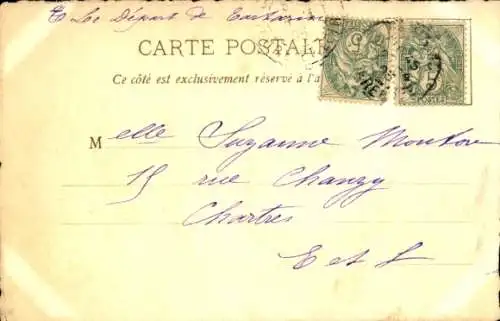 Le Départ de
CARTE POSTALE
Ce côté est exclusivement réservé à l'a
Melle Suzanne
15 rue Chanzy
Chartres
E et L
POSTES